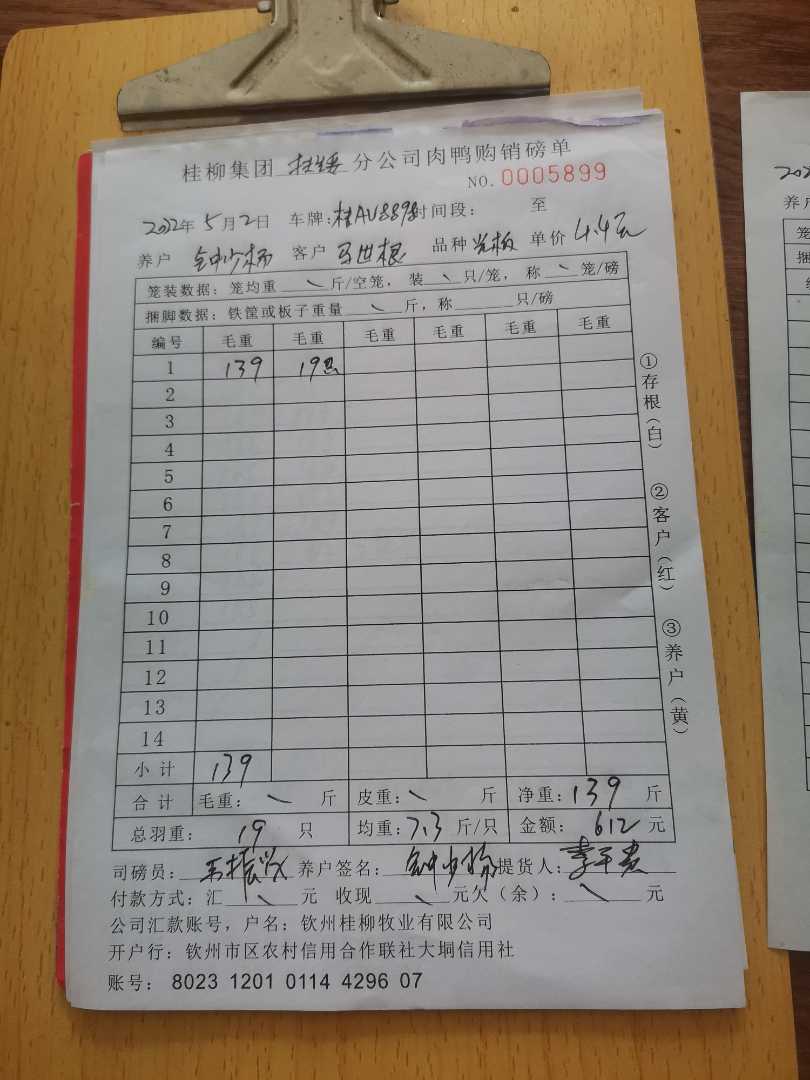 桂柳集团 扶绥 分公司肉鸭购销磅单
NO. 0005899
2022年 5月2日 车牌：桂AU8898 时间段： 至
养户 钟少杨 客户 马世根 品种 光板 单价 4.4元
笼装数据：笼均重 \ 斤/空笼，装 \ 只/笼，称 \ 笼/磅
捆脚数据：铁筐或板子重量 \ 斤，称 只/磅
编号 毛重 毛重 毛重 毛重 毛重 毛重
1 139 19只
2
3
4
5
6
7
8
9
10
11
12
13
14
小计 139
合计 毛重： \ 斤 皮重： \ 斤 净重：139 斤
总羽重： 19 只 均重：7.3 斤/只 金额： 612 元
司磅员： 养户签名： 钟少杨 提货人：
付款方式：汇 \ 元 收现 \ 元欠（余）： \ 元
公司汇款账号，户名：钦州桂柳牧业有限公司
开户行：钦州市区农村信用合作联社大垌信用社
账号： 8023 1201 0114 4296 07
①存根（白）
②客户（红）
③养户（黄）
202
养户
笼
捆